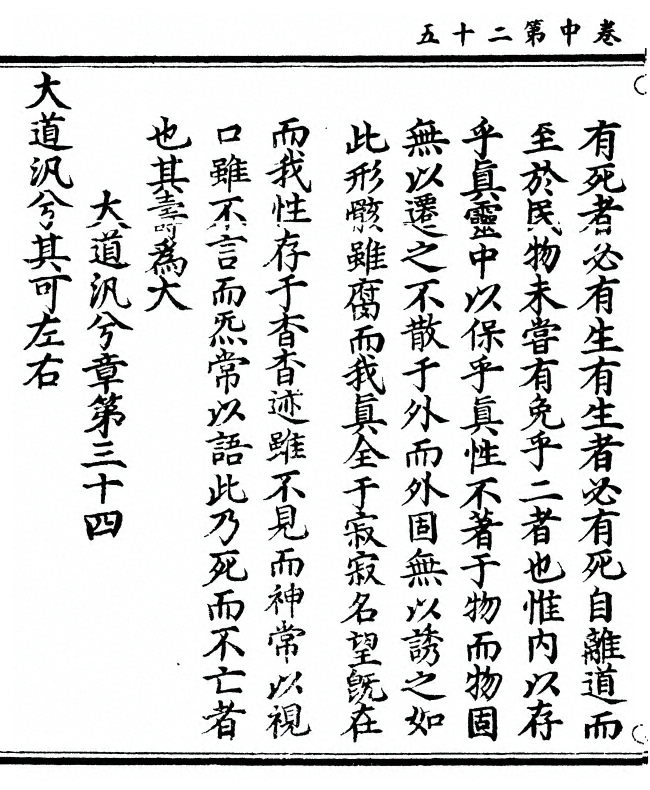 卷中第二十五
有死者必有生有生者必有死自離道而
至於民物未嘗有免乎二者也惟内以存
乎眞靈中以保乎眞性不著于物而物固
無以遷之不散于外而外固無以誘之如
此形骸雖腐而我眞全于寂寂名望旣在
而我性存于杳杳迹雖不見而神常以視
口雖不言而炁常以語此乃死而不亡者
也其壽爲大
大道汎兮章第三十四
大道汎兮其可左右